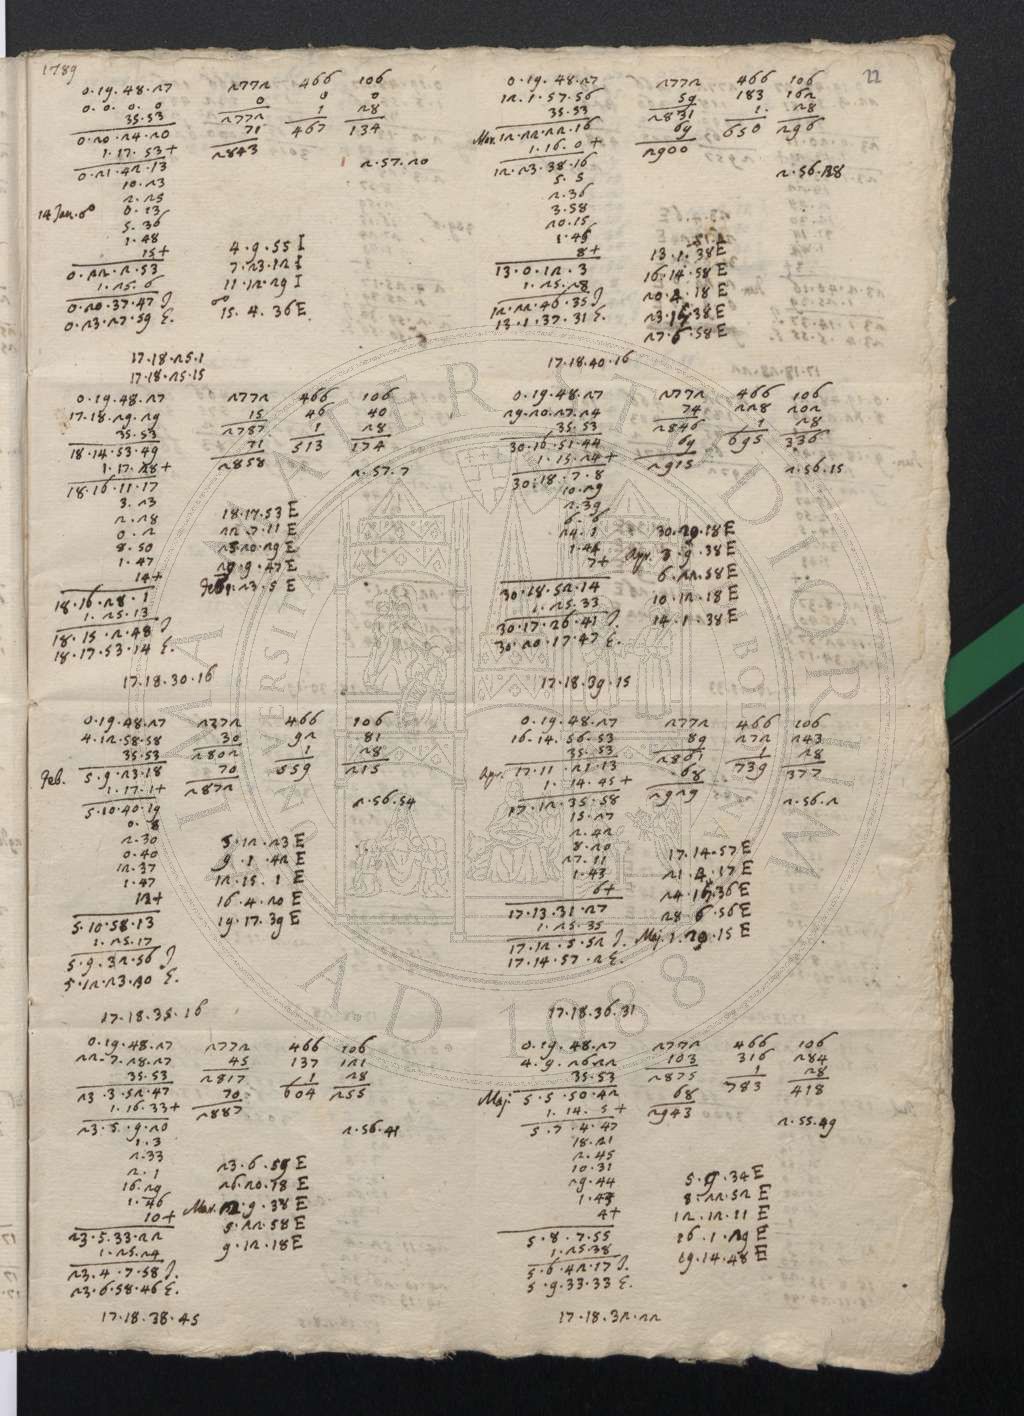 1789
22
0.19.48.27 2772 466 106
0.0.0.0 0 0 0
35.53 2772 1 28
0.20.24.20 71 467 134
1.17.53+ 2843
0.21.42.13 2.57.20
10.23
2.25
14 Jan. 0.13
5.36
1.48
15+ 4.9.55 I
0.22.2.53 7.23.12 I
1.25.6 11.12.29 I
0.20.37.47 J. 15.4.36 E
0.23.27.59 E.
17.18.25.1
17.18.25.15
0.19.48.27 2772 466 106
17.18.29.29 15 46 40
35.53 2787 1 28
18.14.53.49 71 513 174
1.17.28+ 2858
18.16.11.17 2.57.7
3.23
2.28 18.17.53 E
0.2 22.7.11 E
8.50 25.20.29 E
1.47 29.9.47 E
14+ Feb. 1.23.5 E
18.16.28.1
1.25.13
18.15.2.48 J
18.17.53.14 E.
17.18.30.16
0.19.48.27 2772 466 106
4.12.58.58 30 92 81
35.53 2802 1 28
Feb. 5.9.23.18 70 559 215
1.17.1+ 2872
5.10.40.19 2.56.54
0.8
2.30 5.12.23 E
0.40 9.1.42 E
12.37 12.15.1 E
1.47 16.4.20 E
12+ 19.17.39 E
5.10.58.13
1.25.17
5.9.32.56 J
5.12.23.30 E.
17.18.35.16
0.19.48.27 2772 466 106
22.7.28.27 45 137 121
35.53 2817 1 28
23.3.52.47 70 604 255
1.16.33+ 2887
23.5.9.20 2.56.41
1.3
2.33
2.1 23.6.59 E
16.29 26.20.18 E
1.46 Mar. 2.9.38 E
10+ 5.22.58 E
23.5.33.22 9.12.18 E
1.25.24
23.4.7.58 J.
23.6.58.46 E.
17.18.38.45
0.19.48.27 2772 466 106
12.1.57.56 59 183 162
35.53 2831 1 28
Mar. 12.22.22.16 69 650 296
1.16.0+ 2900
12.23.38.16 2.56.28
5.5
2.36
3.58
20.15
1.45
8+ 13.1.38 E
13.0.12.3 16.14.58 E
1.25.28 20.4.18 E
12.22.46.35 J 23.16.38 E
13.1.37.31 E. 27.6.58 E
17.18.40.16
0.19.48.27 2772 466 106
29.20.27.24 74 228 202
35.53 2846 1 28
30.16.51.44 69 695 336
1.15.24+ 2915
30.18.7.8 2.56.15
10.29
2.39
6.6
24.1 30.20.18 E
1.44 Apr. 3.9.38 E
7+ 6.22.58 E
30.18.52.14 10.12.18 E
1.25.33 14.1.38 E
30.17.26.41 J.
30.20.17.47 E.
17.18.39.15
0.19.48.27 2772 466 106
16.14.56.53 89 272 243
35.53 2861 1 28
Apr. 17.11.21.13 68 739 377
1.14.45+ 2929
17.12.35.58 2.56.2
15.27
2.42
8.20
27.11 17.14.57 E
1.43 21.4.17 E
6+ 24.17.36 E
17.13.31.27 28.6.56 E
1.25.35 Maj. 1.20.15 E
17.12.5.52 J.
17.14.57.2 E.
17.18.36.31
0.19.48.27 2772 466 106
4.9.26.22 103 316 284
35.53 2875 1 28
Maj 5.5.50.42 68 783 418
1.14.5+ 2943
5.7.4.47 2.55.49
18.21
2.45
10.31 5.9.34 E
29.44 8.22.52 E
1.43 12.12.11 E
4+ 16.1.29 E
5.8.7.55 19.14.48 E
1.25.38
5.6.42.17 J.
5.9.33.33 E.
17.18.32.22
ALMA MATER STUDIORUM
UNIVERSITAS BONONIENSIS
A.D. 1088